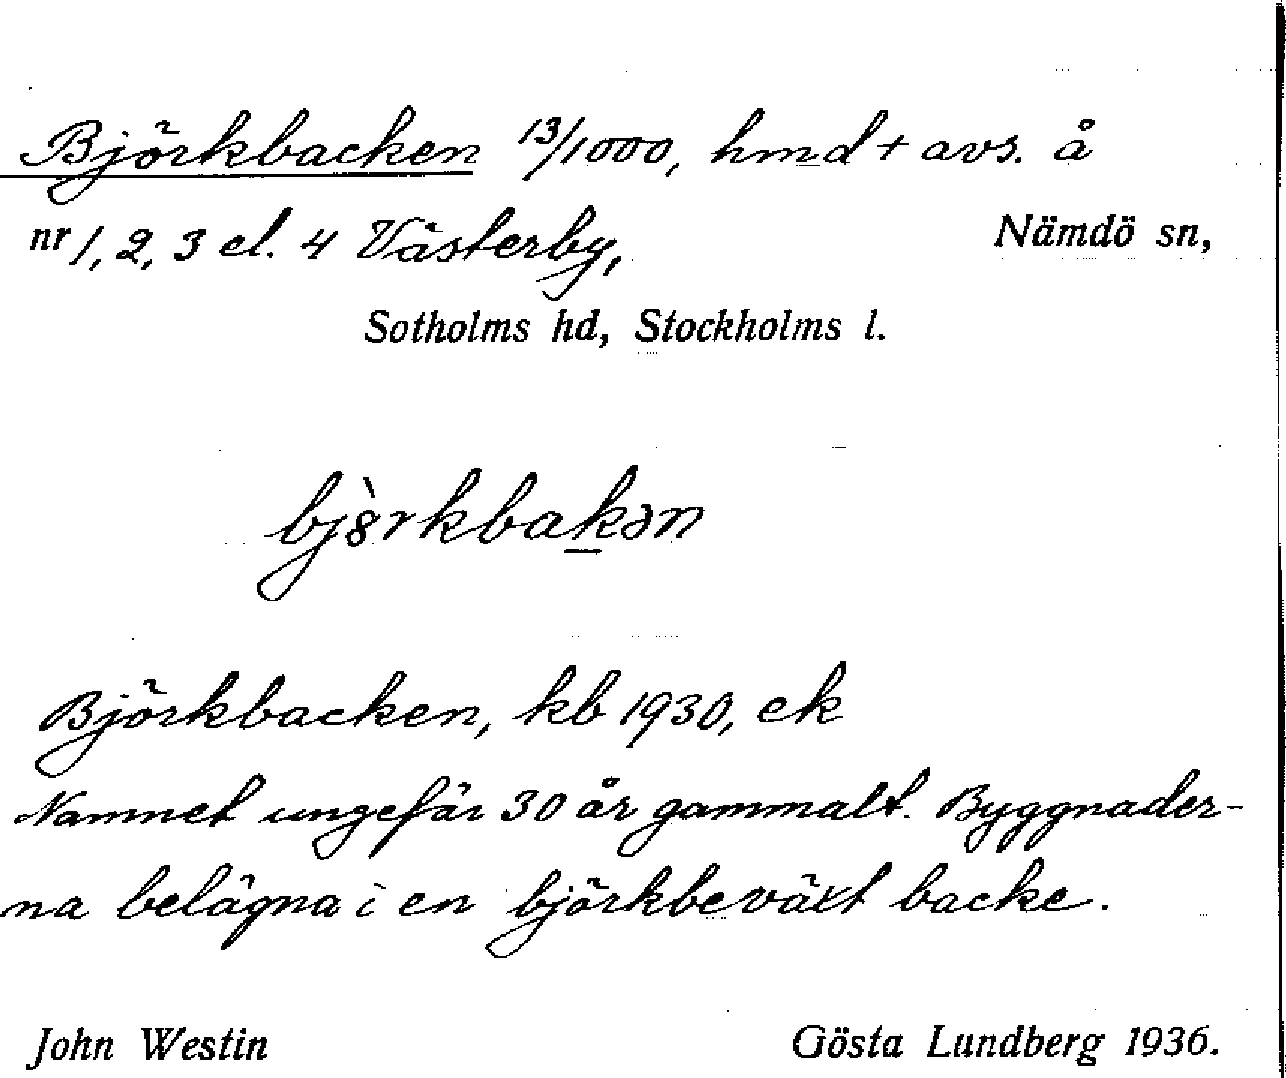 Björkbacken 13/1000, hmd + avs. å
nr 1, 2, 3 el. 4 Västerby, Nämdö sn,
Sotholms hd, Stockholms l.
bjòrkbakən
Björkbacken, kb 1930, ek
Namnet ungefär 30 år gammalt. Byggnader-
na belägna i en björkbeväxt backe.
John Westin Gösta Lundberg 1936.